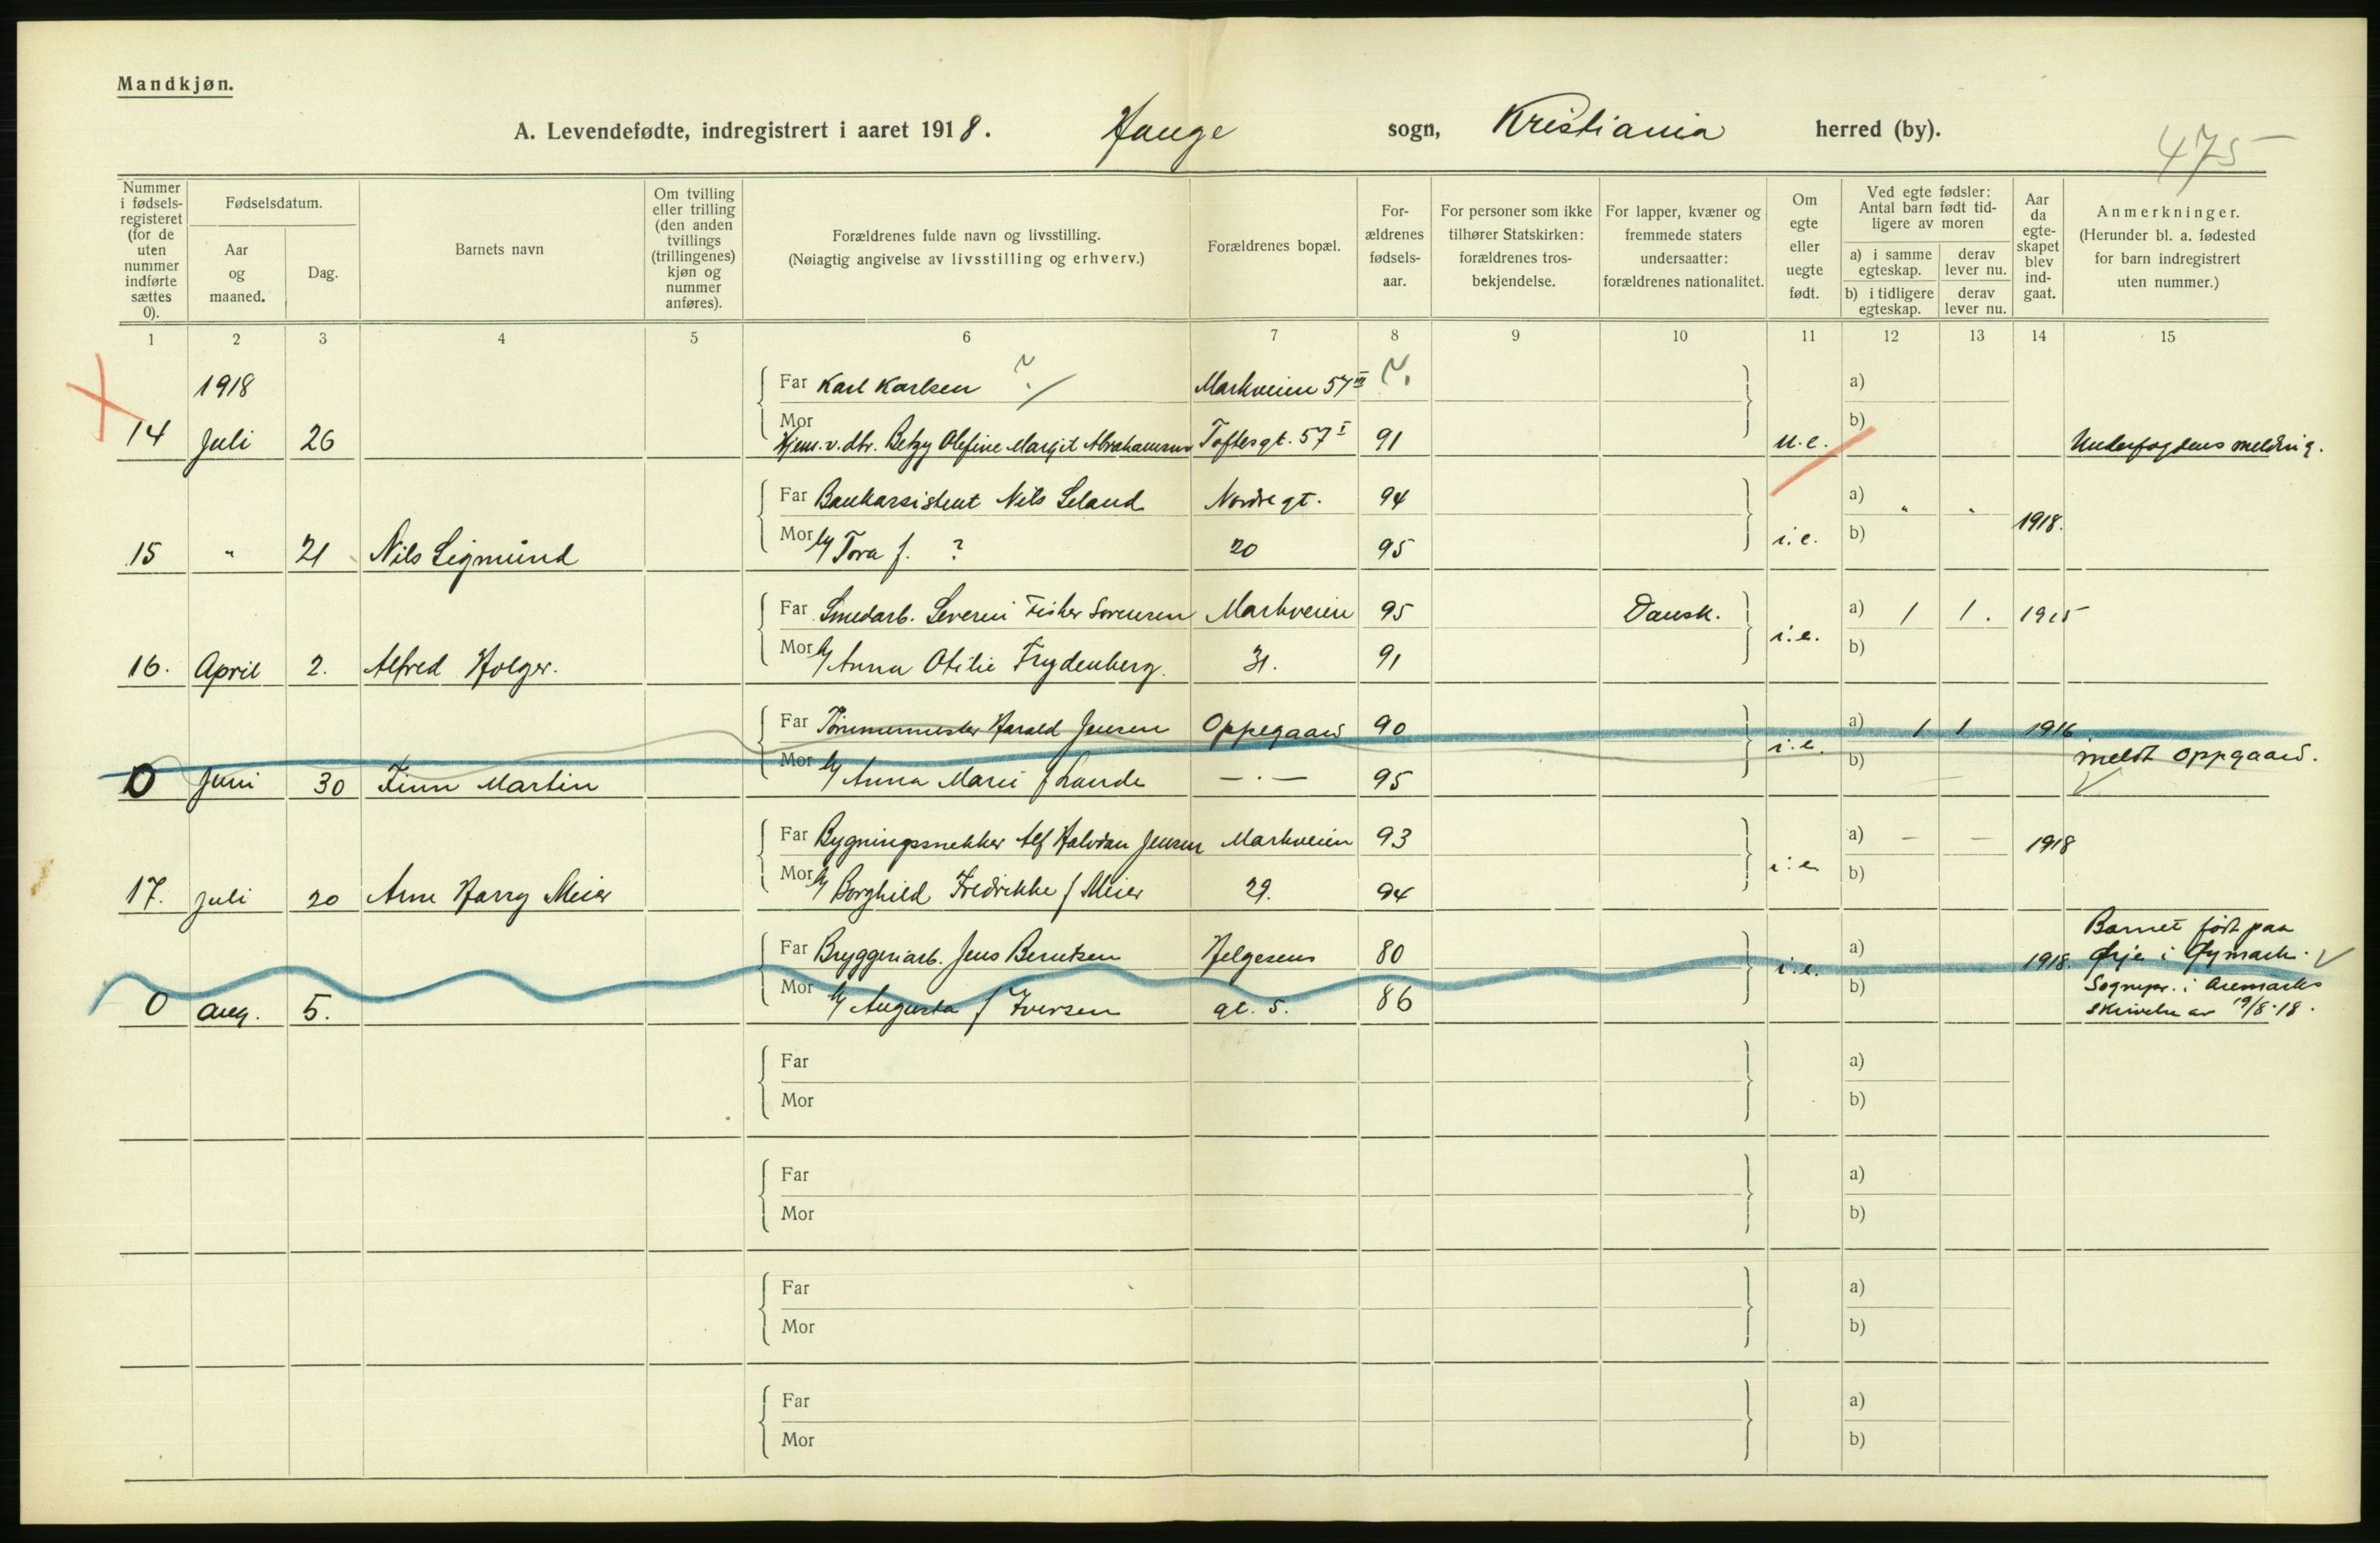 Mandkjøn.
A. Levendefødte, indregistrert i aaret 1918. Hauge sogn, Kristiania herred (by).
475
Nummer i fødsels-registeret (for de uten nummer indførte sættes 0).
Fødselsdatum.
Aar og maaned.
Dag.
Barnets navn
Om tvilling eller trilling (den anden tvillings (trillingenes) kjøn og nummer anføres).
Forældrenes fulde navn og livsstilling.
(Nøiagtig angivelse av livsstilling og erhverv.)
Forældrenes bopæl.
For-ældrenes fødsels-aar.
For personer som ikke tilhører Statskirken: forældrenes tros-bekjendelse.
For lapper, kvæner og fremmede staters undersaatter: forældrenes nationalitet.
Om egte eller uegte født.
Ved egte fødsler: Antal barn født tid-ligere av moren
a) i samme egteskap.
derav lever nu.
b) i tidligere egteskap.
derav lever nu.
Aar da egte-skapet blev ind-gaat.
Anmerkninger.
(Herunder bl. a. fødested for barn indregistrert uten nummer.)
1 2 3 4 5 6 7 8 9 10 11 12 13 14 15
1918 Far Karl Karlsen ? Markveien 57 III ?. a)
14 Juli 26 Mor Hjem. v. dtr. Betzy Olefine Margit Abrahamsen Toftesgt. 57 I 91 u.e. b) Underfogdens melding.
Far Bankassistent Nils Leland Nordregt. 94 a) " " 1918.
15 " 21 Nils Sigmund Mor Tora f. ? 20 95 i.e. b)
Far Smedarb. Severin Fisker Sorensen Markveien 95 Dansk. a) 1 1. 1915
16. April 2. Alfred Holger. Mor Anna Otilie Frydenberg. 31. 91 i.e. b)
Far Tømmermester Harald Jensen Oppegaard 90 a) 1 1 1916
0 Juni 30 Finn Martin Mor Anna Marie f Lande — · — 95 i.e. b) meldt Oppgaard.
Far Bygningssnekker Alf Halvdan Jensen Markveien 93 a) — — 1918
17. Juli 20 Arne Harry Meier Mor Borghild Fredrikke f Meier 29. 94 i.e. b)
Far Bryggeriarb. Jens Berntsen Helgesens 80 a) 1918. Barnet født paa Ørje i Øymark.
0 Aug. 5. Mor Augusta f Iversen gt. 5. 86 i.e. b) Sognepr. i Aremarks skrivelse av 19/8-18.
Far a)
Mor b)
Far a)
Mor b)
Far a)
Mor b)
Far a)
Mor b)